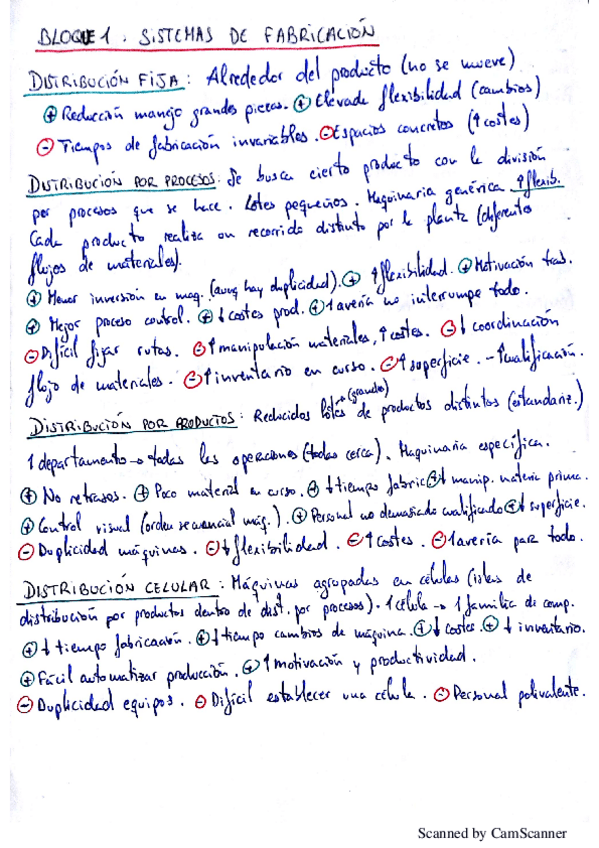 BLOQUE 1: SISTEMAS DE FABRICACIÓN
DISTRIBUCIÓN FIJA: Alrededor del producto (no se mueve)
⊕ Reducción manejo grandes piezas. ⊕ Elevada flexibilidad (cambios)
⊖ Tiempos de fabricación invariables. ⊖ Espacios concretos (↑ costes)
DISTRIBUCIÓN POR PROCESOS: Se busca cierto producto con la división
por procesos que se hace. Lotes pequeños. Maquinaria genérica ↑ flexib.
Cada producto realiza un recorrido distinto por la planta (diferentes
flujos de materiales).
⊕ Menor inversión en maq. (aunq hay duplicidad). ⊕ ↑ flexibilidad. ⊕ Motivación trab.
⊕ Mejor proceso control. ⊕ ↓ costes prod. ⊕ 1 avería no interrumpe todo.
⊖ Difícil fijar rutas. ⊖ ↑ manipulación materiales, ↑ costes. ⊖ ↓ coordinación
flujo de materiales. ⊖ ↑ inventario en curso. ⊖ ↑ superficie. - ↑ cualificación.
DISTRIBUCIÓN POR PRODUCTOS: Reducidos lotes (grande) de productos distintos (estandariz.)
1 departamento → todas las operaciones (todas cerca). Maquinaria específica.
⊕ No retrasos. ⊕ Poco material en curso. ⊕ ↓ tiempo fabric. ⊕ ↓ manip. materia prima.
⊕ Control visual (orden secuencial máq.). ⊕ Personal no demasiado cualificado ⊕ ↓ superficie.
⊖ Duplicidad máquinas. ⊖ ↓ flexibilidad. ⊖ ↑ costes. ⊖ 1 avería par todo.
DISTRIBUCIÓN CELULAR: Máquinas agrupadas en células (islas de
distribución por productos dentro de dist. por procesos). 1 célula → 1 familia de comp.
⊕ ↓ tiempo fabricación. ⊕ ↓ tiempo cambios de máquina. ⊕ ↓ costes. ⊕ ↓ inventario.
⊕ Fácil automatizar producción. ⊕ ↑ motivación y productividad.
⊖ Duplicidad equipos. ⊖ Difícil establecer una célula. ⊖ Personal polivalente.
Scanned by CamScanner